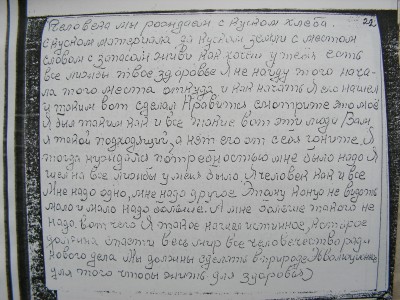 24
Человека мы рождаем с куском хлеба.
с куском материала, да куском земли с местом
словом с запасом живи как хочешь у тебя есть
все лимбы твое здоровье Я не найду того нача-
ла того места откуда и как начать Я его нашел
и таким вот сделал Нравится смотрите это мое
Я был таким как и все такие вот эти люди Вам
я такой подходящий, а нет его от себя гоните Я
тогда нуждался потребностью мне было надо Я
шел на все лимбы у меня было Я человек как и все
Мне надо одно, мне надо другое Этому концу не видать
мало и мало надо больше. А мне больше такого не
надо. вот чего Я такое нашел истинное, которое
должна спасти весь мир все человечество ради
нового дела Мы должны сделать в природе Эволюцию
для того чтобы жить для здоровья)